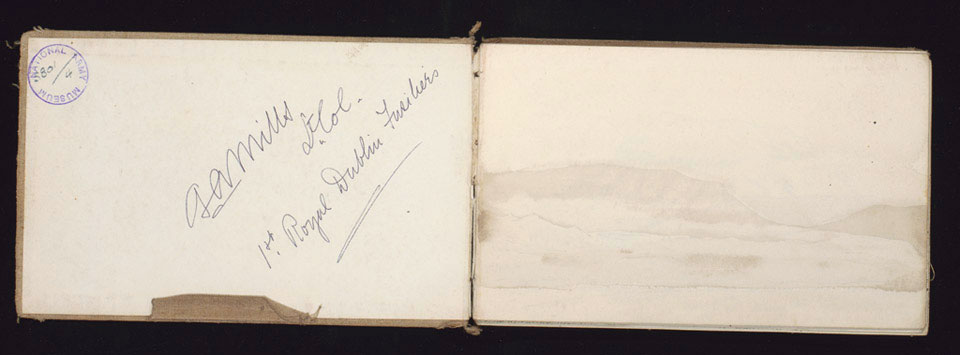 NATIONAL ARMY MUSEUM
80/4
GA Mills
Lt Col.
1st. Royal Dublin Fusiliers